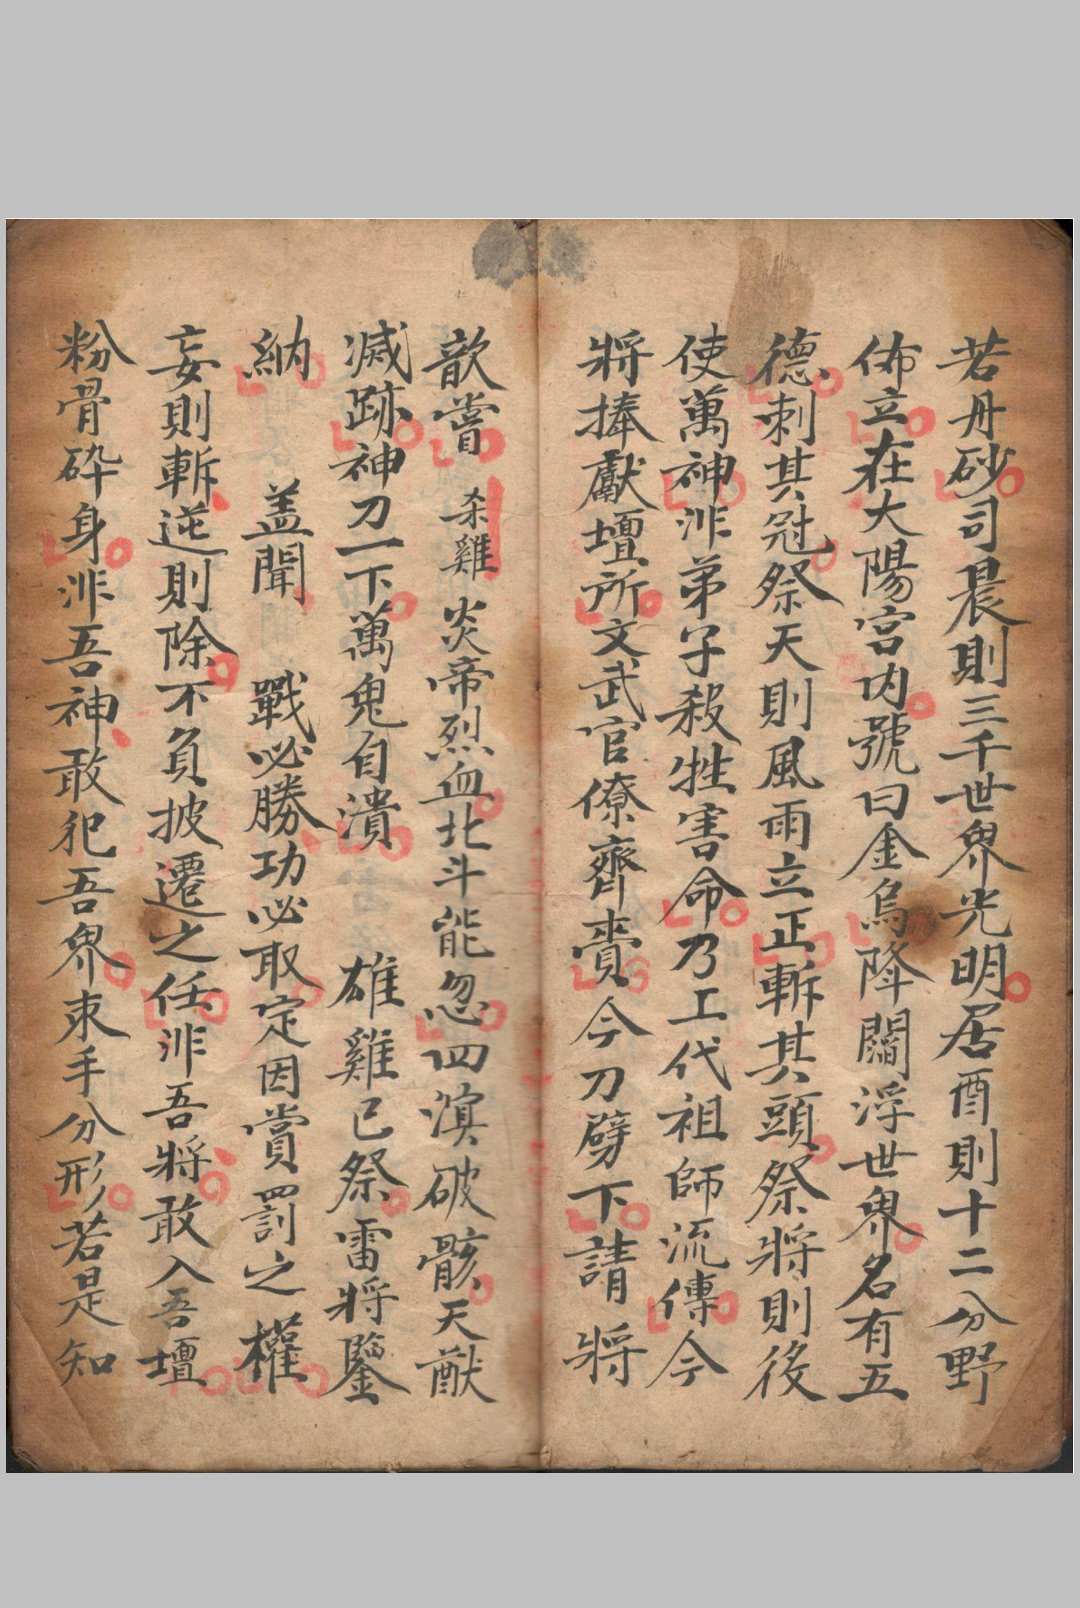 若丹砂司晨則三千世界光明居酉則十二分野
佈立在大陽宮内號曰金烏降閻浮世界名有五
德刺其冠祭天則風雨立正斬其頭祭將則後
使萬神非弟子殺牲害命乃工代祖師流傳今
將捧獻壇所文武官僚齊賫今刀劈下請 將
歆嘗 杀雞 炎帝烈血北斗能忽四溟破骸天猷
滅跡神刀一下萬鬼自潰 雄雞已祭雷將鑒
納 盖聞 戰必勝功必取定因賞罰之 權
妄則斬逆則除不負披遷之任非吾將敢入吾壇
粉骨碎身非吾神敢犯吾界束手分形若是知